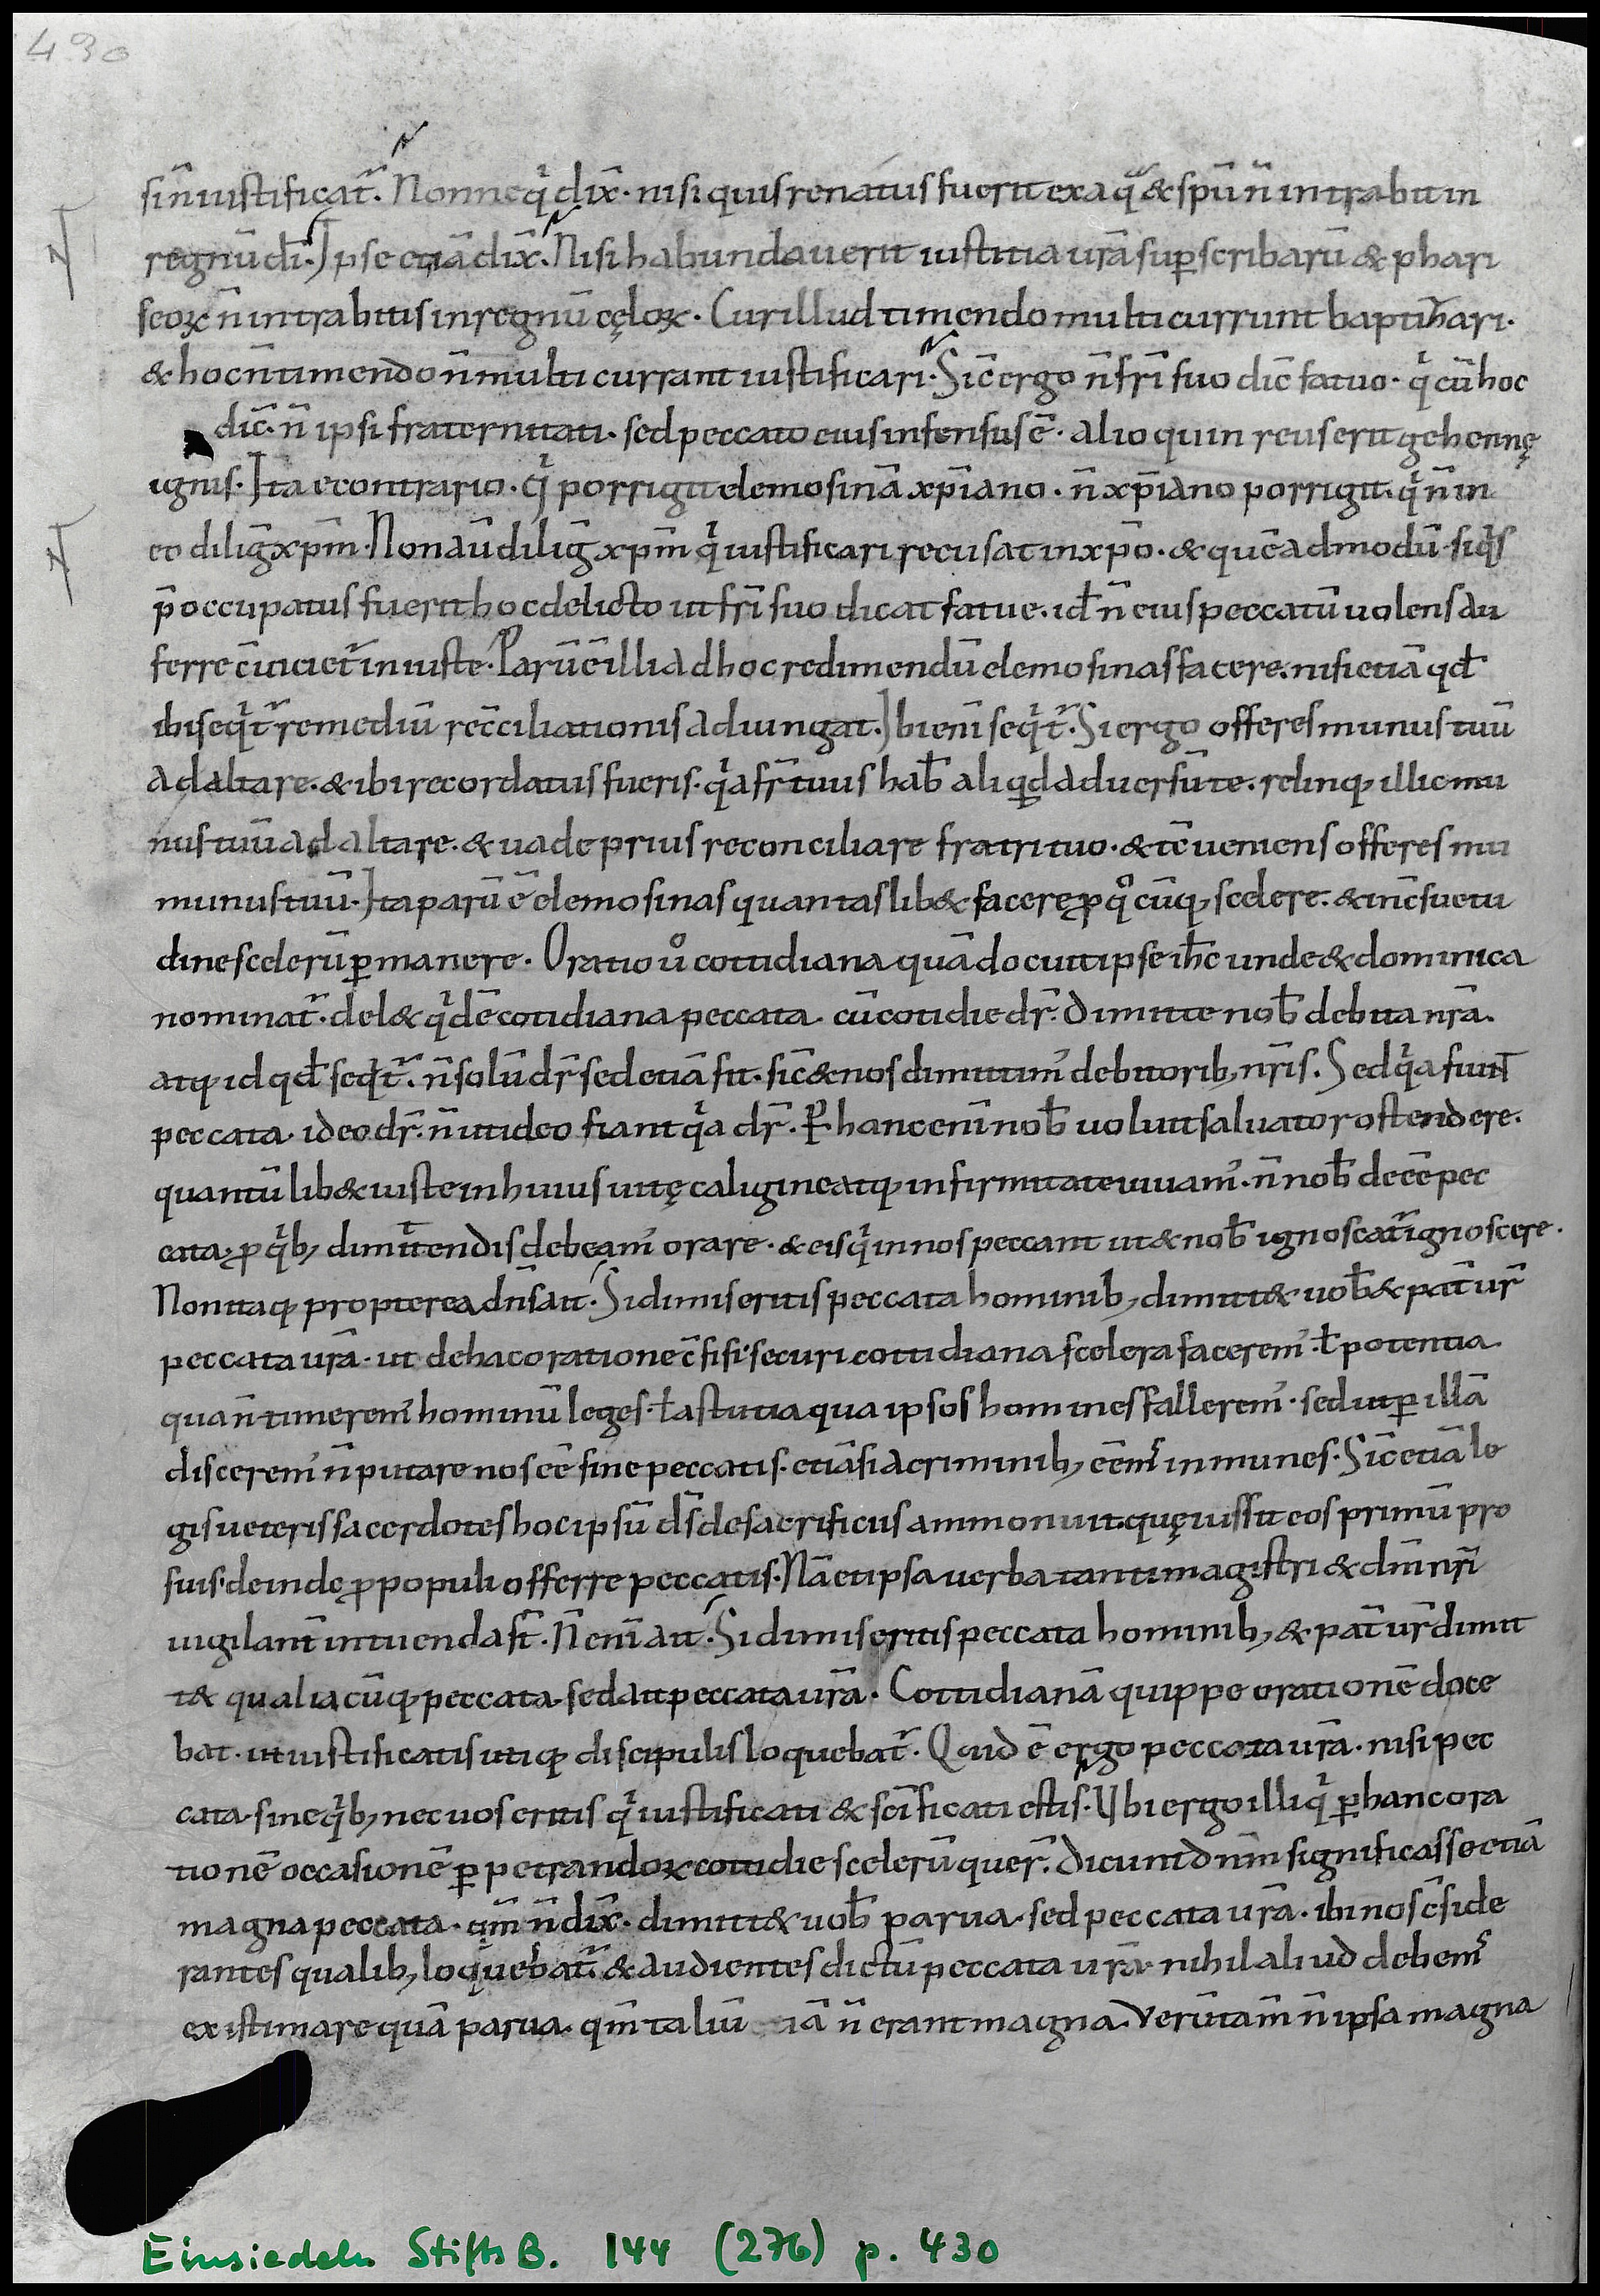 430
si n̄ iustificat᷒. Nonne qͥ dix̄. nisi quis renatus fuerit ex aqͣ & spū n̄ intrabit in
regnū dī. Ipse etiā dix̄. Nisi habundauerit iustitia ur̄a sup̄ scribarū & phari
seoꝝ n̄ intrabitis in regnū cęloꝝ. Cur illud timendo multi currunt baptizari.
& hoc n̄ timendo n̄ multi currant iustificari. Sic̄ ergo n̄ fr̄i suo dic̄ fatuo. qͥ cū hoc
dic̄. n̄ ipsi fraternitati. sed peccato eius infensus ē. alioquin reus erit gehennę
ignis. Ita econtrario. qͥ porrigit elemosinā xp̄iano. n̄ xp̄iano porrigit. qͥ n̄ in
eo diliḡ xp̄m. Non aū diliḡ xp̄m qͥ iustificari recusat in xp̄o. & quēadmodū siqͥs
p̄occupatus fuerit hoc delicto ut fr̄i suo dicat fatue. id ̄ n̄ eius peccatū uolens au
ferre c̄uiciet᷒ iniuste. Parū ē illi ad hoc redimendū elemosinas facere. nisi etiā qd̄
ibi seqͥt᷒ remediū rec̄ciliationis adiungat. Ibi eni̅ seqͥt᷒. Si ergo offeres munus tuū
ad altare. & ibi recordatus fueris. qͥa fr̄ tuus hab̄ aliqͥd aduersū te. relinq; illic mu
nus tuū ad altare. & uade prius reconciliare fratri tuo. & tc̄ ueniens offeres mu
munus tuū. Ita parū ē elemosinas quantaslib& facere ꝓ qͦcūq; scelere. & in c̄suetu
dine scelerū ꝑmanere. Oratio uͦ cottidiana quā docuit ipse ih̄c unde & dominica
nominat᷒. del& qͥdē cotidiana peccata. cū cotidie dr̄. Dimitte nob̄ debita nr̄a.
atq; id qd̄ seqͥt᷒. n̄ solū dr̄ sed etiā fit. sic̄ & nos dimittim᷒ debitorib; nr̄is. Sed qͥa fiunt
peccata. ideo dr̄. n̄ ut ideo fiant qͥa dr̄. Ꝑ hanc eni̅ nob̄ uoluit saluator ostendere.
quantūlib& iuste in huius uitę caligine atq; infirmitate uiuam᷒. n̄ nob̄ deēē pec
cata. ꝓ qͥb; dimittendis debeam᷒ orare. & eis qͥ in nos peccant ut & nob̄ ignoscat᷒ ignoscere.
Non itaq; propterea dn̄s ait. Si dimiseritis peccata hominib; dimitt& uob̄ & pat̄ ur̄
peccata ur̄a. ut de hac oratione c̄fisi securi cottidiana scelera facerem᷒. ł potentia
qua n̄ timerem᷒ hominū leges. ł astutia qua ipsos homines fallerem᷒. sed ut ꝑ illā
discerem᷒ n̄ putare nos ēē sine peccatis. etiā si a criminib; eēm᷒ inmunes. Sic̄ etiā le
gis ueteris sacerdotes hoc ipsū ds̄ de sacrificiis ammonuit. quę iussit eos primū pro
suis. deinde ꝓ populi offerre peccatis. Nā et ipsa uerba tanti magistri & dn̄i nr̄i
uigilant̄ intuenda st̄. N̄ eni̅ ait. Si dimiseritis peccata hominib; & pat̄ ur̄ dimit
t& qualiacūq; peccata. sed ait peccata ur̄a. Cottidianā quippe orationē doce
bat. ut iustificatis utiq; discipulis loquebat᷒. Quid ē ergo peccata ur̄a. nisi pec
cata. sine qͥb; nec uos eritis qͥ iustificati & sc̄ificati estis. Ubi ergo illi qͥ ꝑ hanc ora
tionē occasionē ꝑpetrandoꝝ cottidie scelerū quer̄. dicunt dn̄m significasse etiā
magna peccata. qm̄ n̄ dix̄. dimitt& uob̄ parua. sed peccata ur̄a. ibi nos c̄side
rantes qualib; loquebat᷒. & audientes dictū peccata ur̄a. nihil aliud debem᷒
existimare quā parua. qm̄ taliū iā n̄ erant magna. Verūtam̄ n̄ ipsa magna
Einsiedeln Stifts B. 144 (276) p. 430